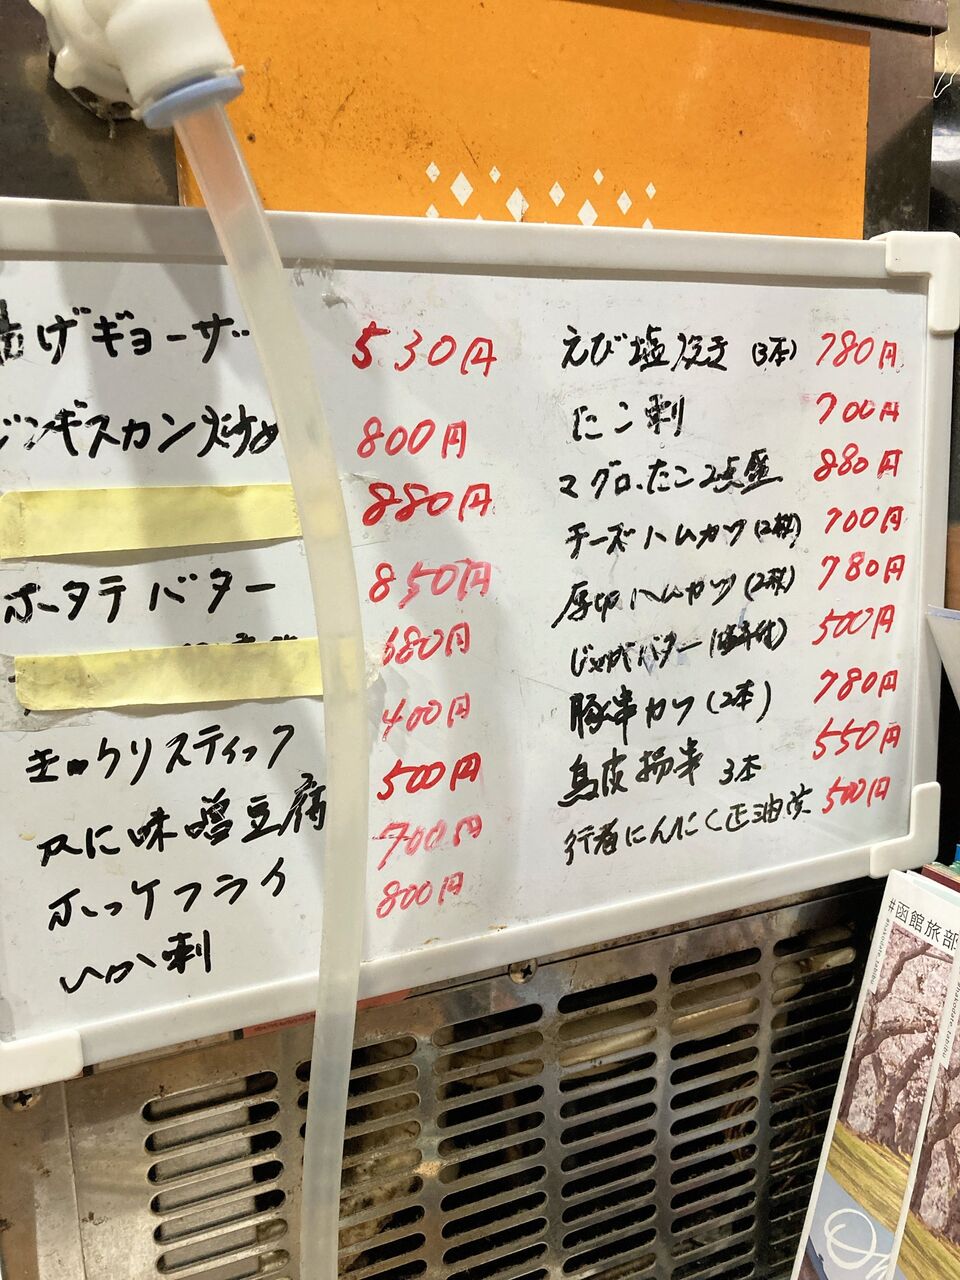 揚げギョーザ 530円
ジンギスカン炒め 800円
880円
ホタテバター 850円
680円
きゅうりスティック 400円
カニ味噌豆腐 500円
ホッケフライ 700円
いか刺 800円
えび塩焼き (3本) 780円
たこ刺 700円
マグロ、たこ2点盛 880円
チーズハムカツ (2枚) 700円
厚切ハムカツ (2枚) 780円
じゃがバター (塩辛付) 500円
豚串カツ (2本) 780円
鳥皮揚串 3本 550円
行者にんにく正油漬 500円
#函館旅部
#hakodate.tabibu